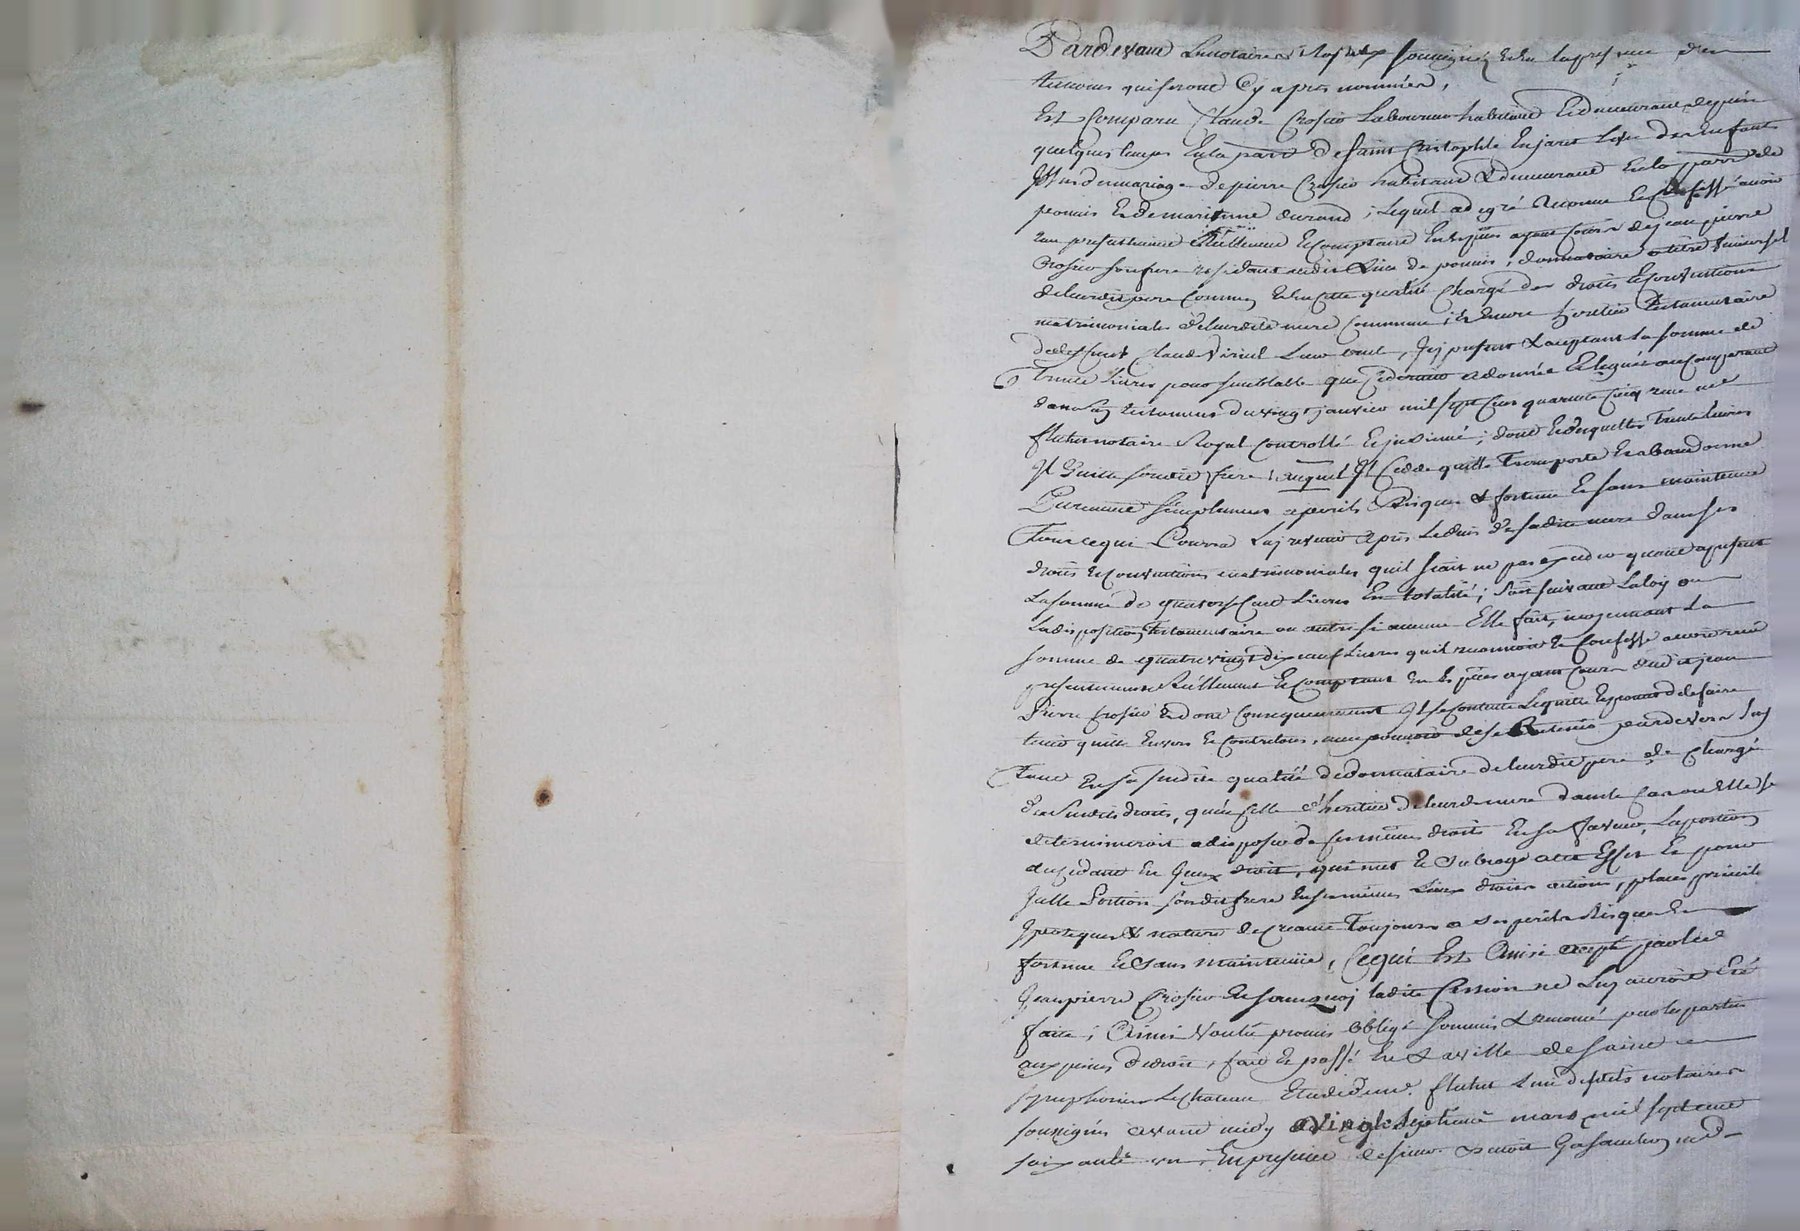 Pardevant Les notaires Royaux soussignés Et En la presence des
temoins qui seront Cy apres nommés,
Est Comparu Claude Crosier Laboureur habitant Et demeurant depuis
quelques temps En la parr. de saint Cristophle En jarest L'un des Enfants
du mariage de pierre Crosier habitant & demeurant En la parr. de
Et de marianne durand ; Lequel de gré Reconnu Et Confessé avoir
reçu presentement Réellement Et Comptant En Espèces ayant Cours de jean pierre
Crosier son frere residant audit Lieu de , donnataire a titre universel
de leurdit pere Commun Et En cette qualité Chargé des droits Et Conventions
matrimoniales de leurdite mere Commune ; Et Encore heritier Testamentaire
de deffunt Claude Leur oncle, Icy present & acceptant La somme de
Trente Livres pour semblable que Ce dernier a donnée Et leguée au Comparant
dans son testament du vingt janvier mil sept Cens quarante Cinq reçu me
flutut notaire Royal Controllé Et insinué ; dont Et desquelles Trente Livres
Il quitte sondit frere , auquel Il Cedde quitte Transporte Et abandonne
purement simplement a perils Risques & fortune Et sans maintenue
Tout ce qui Pourra Luy revenir après Le deces de sadite mere dans ses
droits Et Conventions matrimoniales qu'il sçait ne pas exceder quant a present
La somme de quatorze Cent Livres En totalité ; soit suivant La loy ou
La disposition Testamentaire ou autre si aucune Elle fait, moyennant La
somme de quatrevingt dix neuf Livres qu'il reconnoit Et Confesse avoir reçu
presentement Réellement Et Comptant En Espèces ayant Cours dudit jean
Pierre Crosier Et dont Consequemment Il se Contente Le quitte Et promet de le faire
tenir quitte Envers Et Contre tous, avec pouvoir de se Retenir pardevers Luy
Tant En sa susdite qualité de donnataire de leurdit pere de Chargé
des susdits droits, qu'en celle d'heritier de leurdite mere dans le Cas ou Elle se
determineroit a disposer de ses mêmes droits En sa faveur, La portion
du Cedant En Iceux droits, qui met Et subroge a cet Effet Et pour
Icelle Portion sondit frere En ses mêmes Lieux droits actions, places privilege
hypoteques & nature de Creance Toujours a ses perils Risques Et
fortune Et sans maintenue, Ce qui Est Ainsi accepté par led.
Jean pierre Crosier Et sans quoy Ladite Cession ne Luy auroit Eté
faite ; Ainsi Voulu promis obligé soumis & renoncé par les parties
aux peines de droit, fait Et passé En La ville de saint
symphorien Le Chateau Etude de me. flutut L'un desdits notaires
soussignés avant midy Le Vingt Septieme mars mil sept cens
soixante un, En presence de sieur Benoit